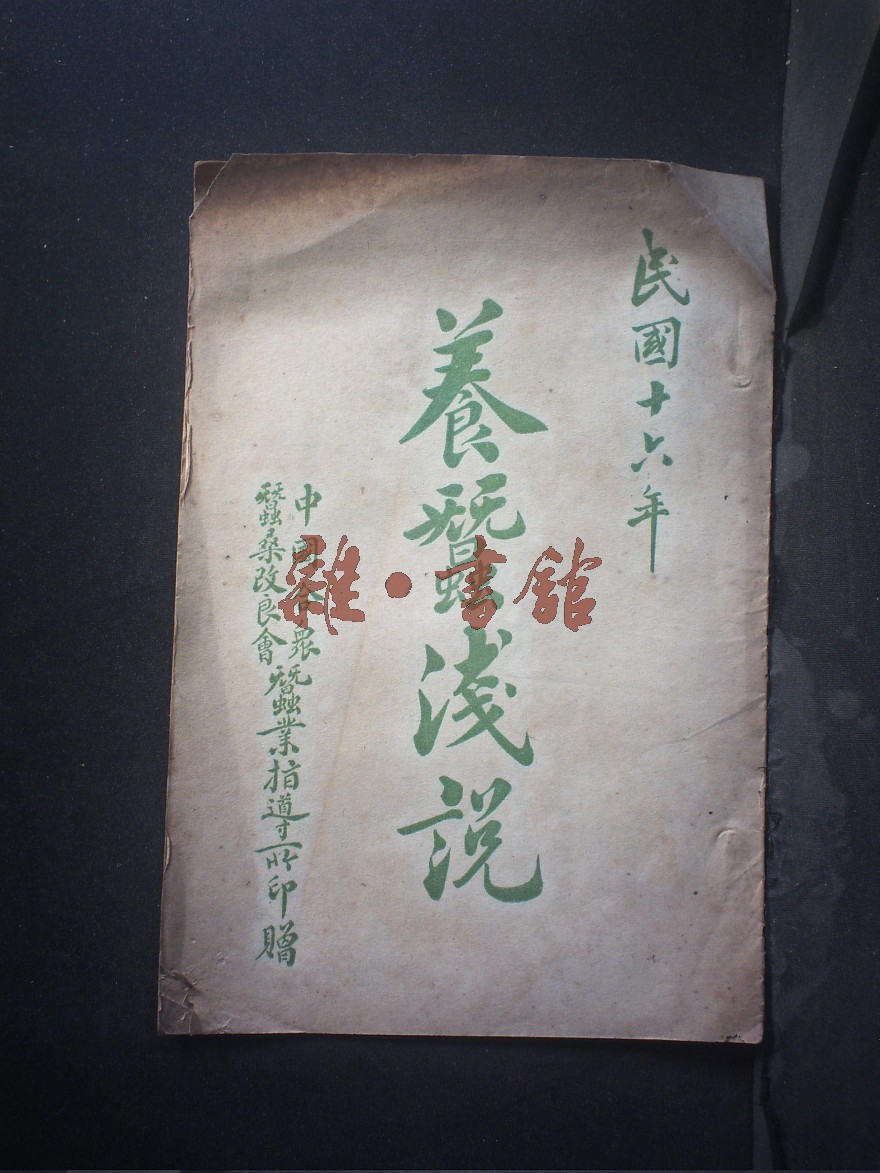 民國十六年
養蠶淺說
中國合衆
蠶桑改良會
蠶業指導所印贈
雜·書館